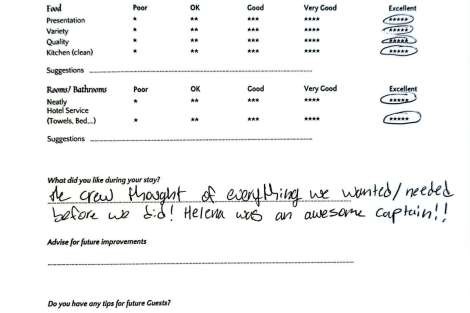 Food Poor OK Good Very Good Excellent
Presentation * ** *** **** *****
Variety * ** *** **** *****
Quality * ** *** **** *****
Kitchen (clean) * ** *** **** *****
Suggestions
Rooms/ Bathrooms Poor OK Good Very Good Excellent
Neatly * ** *** **** *****
Hotel Service
(Towels, Bed...) * ** *** **** *****
Suggestions
What did you like during your stay?
The crew thought of everything we wanted/needed
before we did! Helena was an awesome captain!!
Advise for future improvements
Do you have any tips for future Guests?